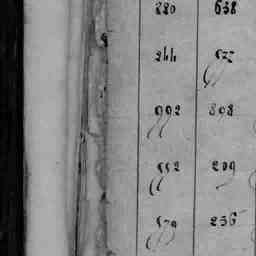 220 638
244 577
992 808
552 209
579 256